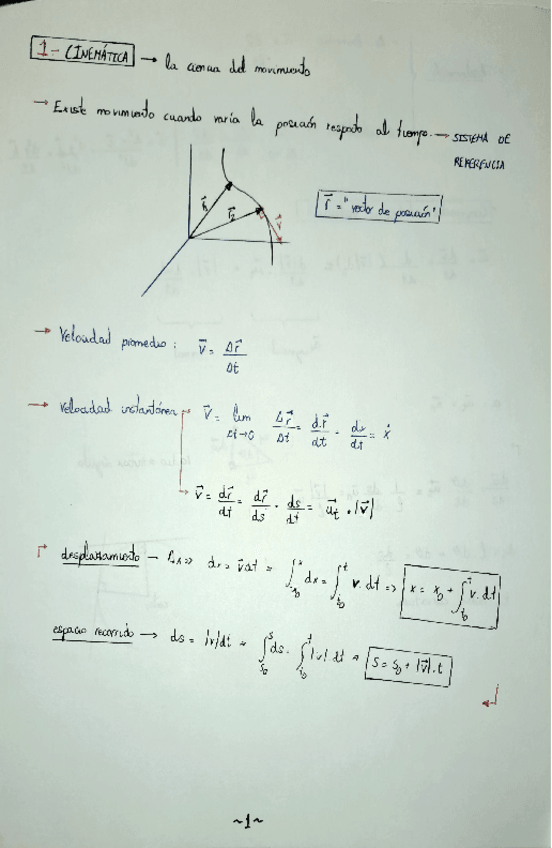 1- CINEMÁTICA → la ciencia del movimiento
→ Existe movimiento cuando varía la posición respecto al tiempo. → SISTEMA DE
REFERENCIA
r⃗₁ r⃗₂ v⃗
r⃗ = "vector de posición"
→ Velocidad promedio: v⃗ = Δr⃗/Δt
→ Velocidad instantánea → v⃗ = lim Δt→0 Δr⃗/Δt = dr⃗/dt · dx/dt = ẋ
→ v⃗ = dr⃗/dt = dr⃗/ds · ds/dt = u⃗t · |v⃗|
desplazamiento → dx = v⃗dt = ∫ˣₓ₀ dx = ∫ᵗₜ₀ v. dt => x = x₀ + ∫ᵗₜ₀ v⃗. dt
espacio recorrido → ds = |v|dt = ∫ˢₛ₀ ds · ∫ᵗₜ₀ |v| dt = S = S₀ + |v⃗|. t
~1~